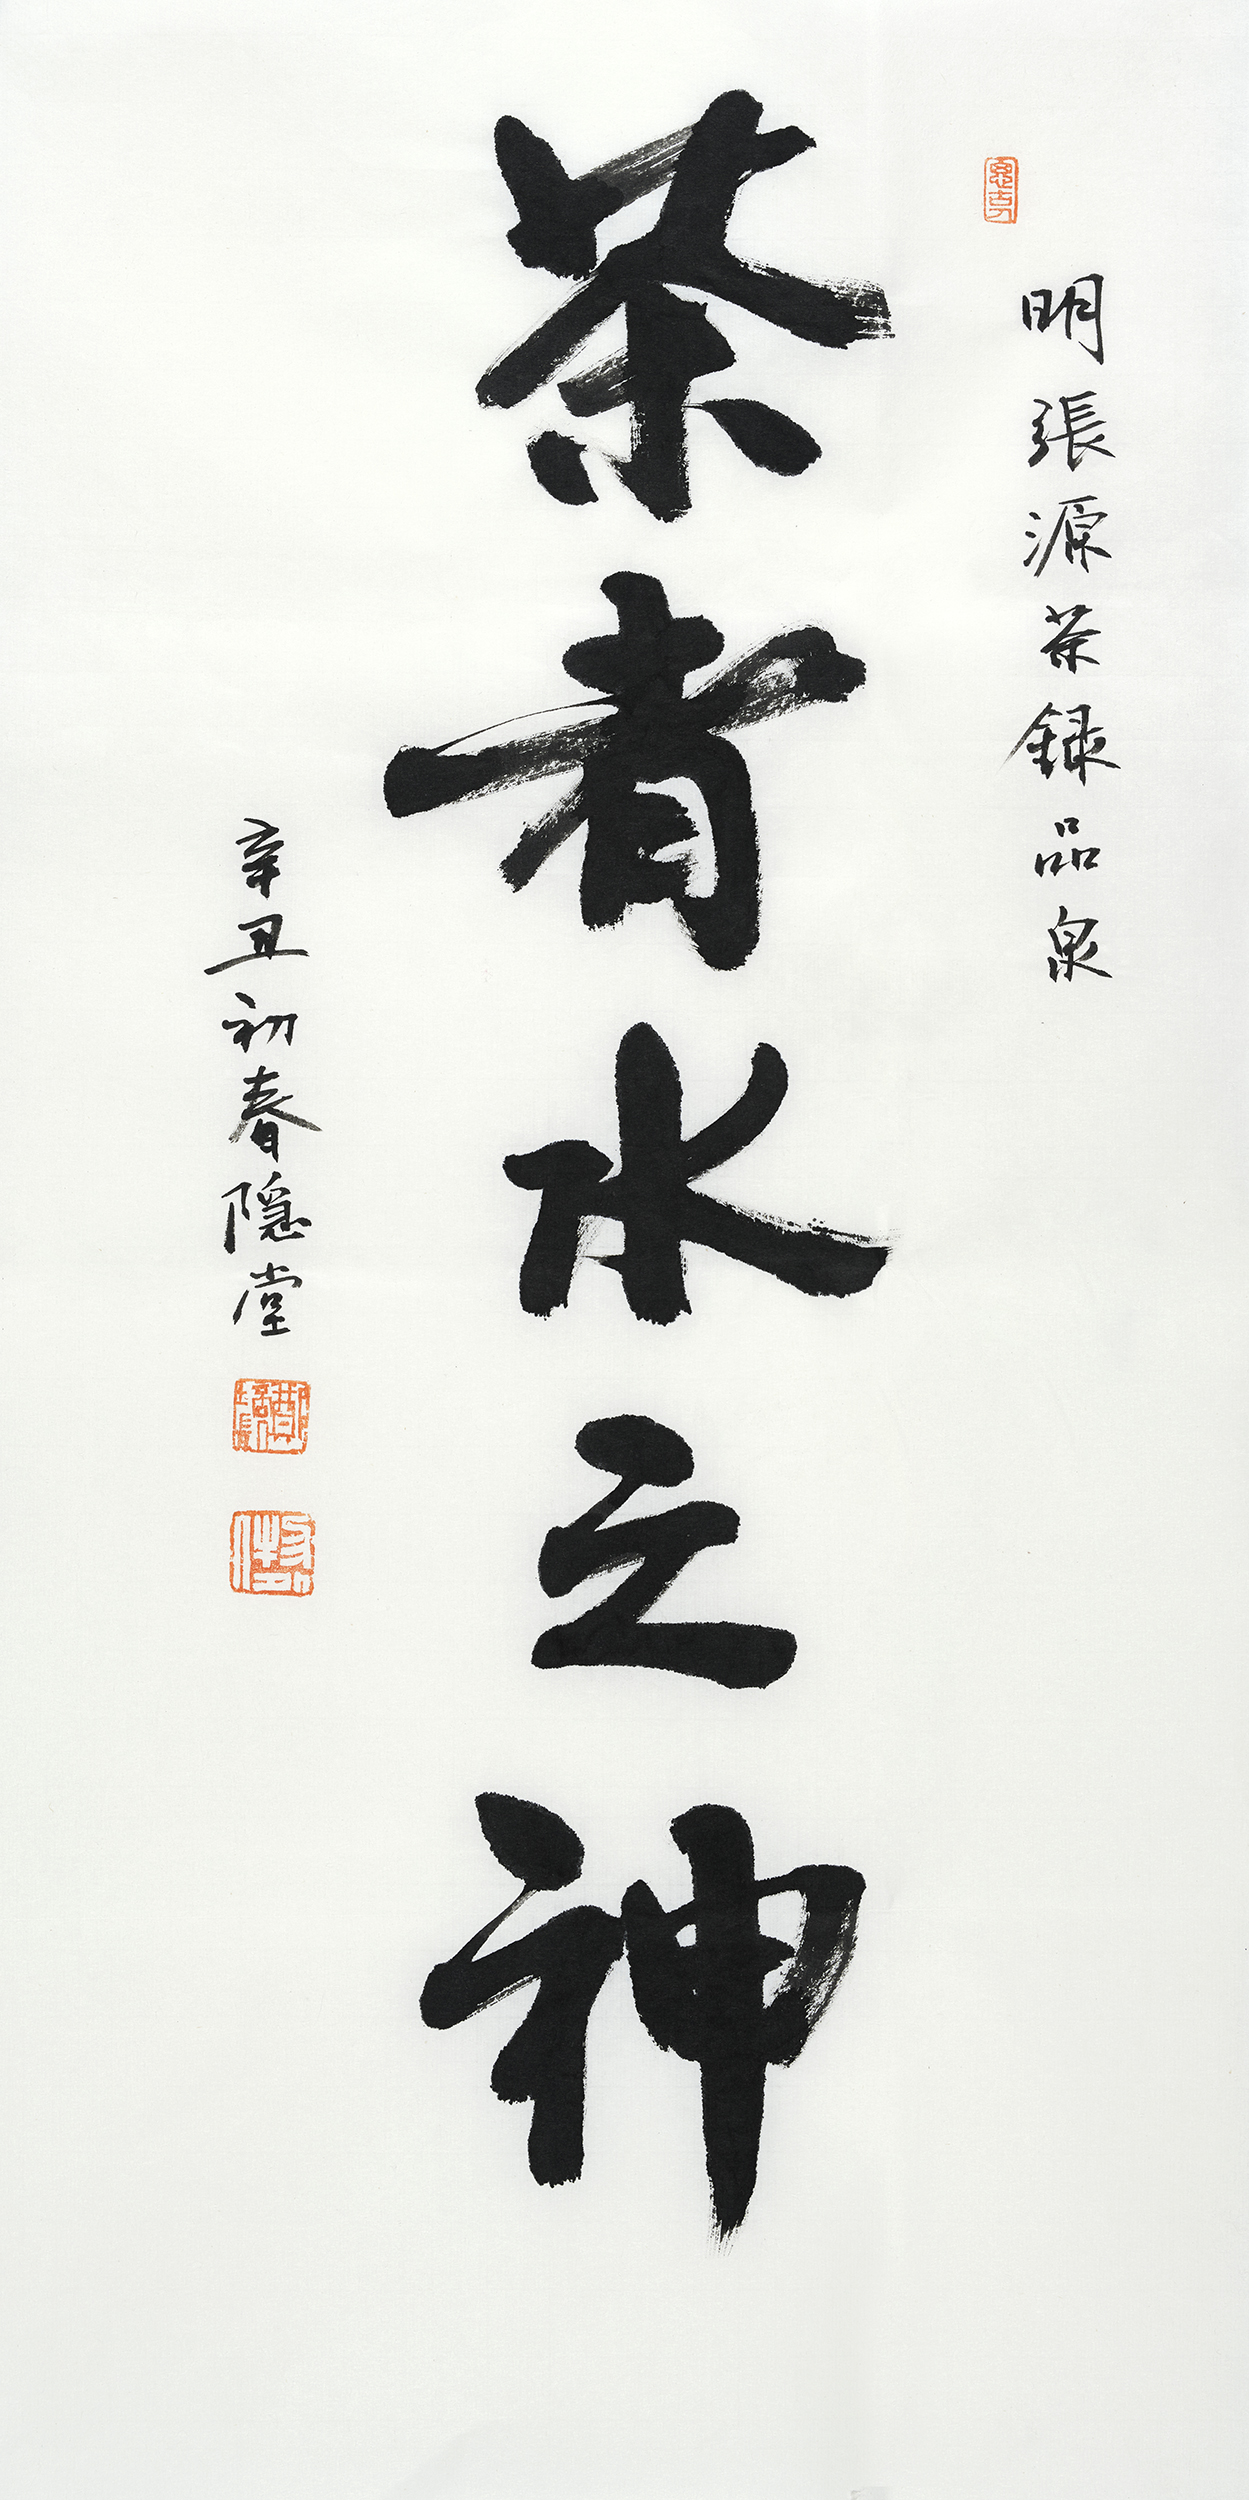 明張源茶録品泉
茶者水之神
辛丑初春隱堂